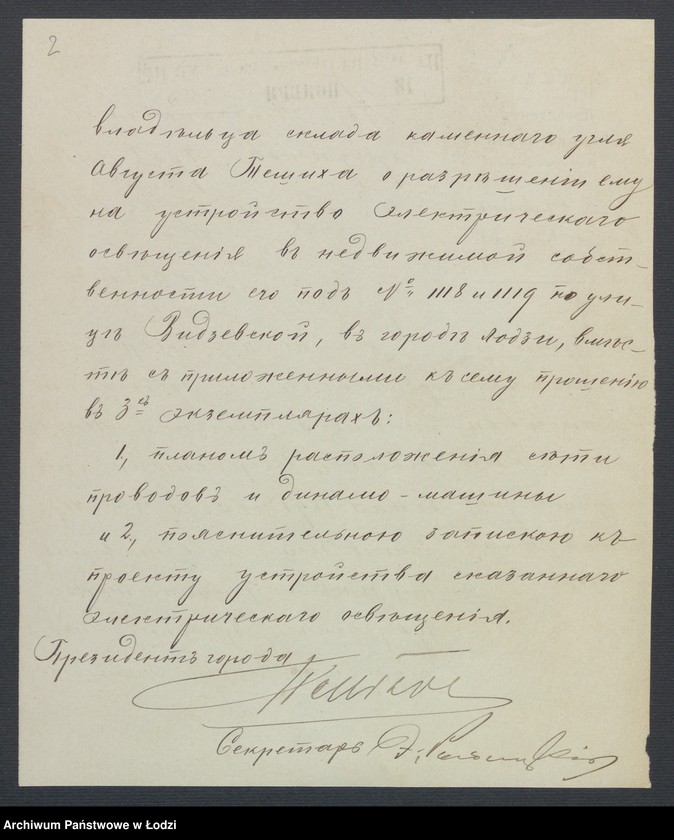 2
владѣльца склада каменнаго угля
Августа Тешиха о разрѣшеніи ему
на устройство электрическаго
освѣщенія въ недвижимой собст-
венности его подъ № 1118 и 1119 по ули-
цѣ Видзевской, въ городѣ Лодзи, вмѣс-
тѣ съ приложенными къ сему прошенію
въ 3хъ экземплярахъ:
1, планомъ расположенія сѣти
проводовъ и динамо-машины
и 2, пояснительною запискою къ
проекту устройства сказаннаго
электрическаго освѣщенія.
Президентъ города
Секретарь
Archiwum Państwowe w Łodzi